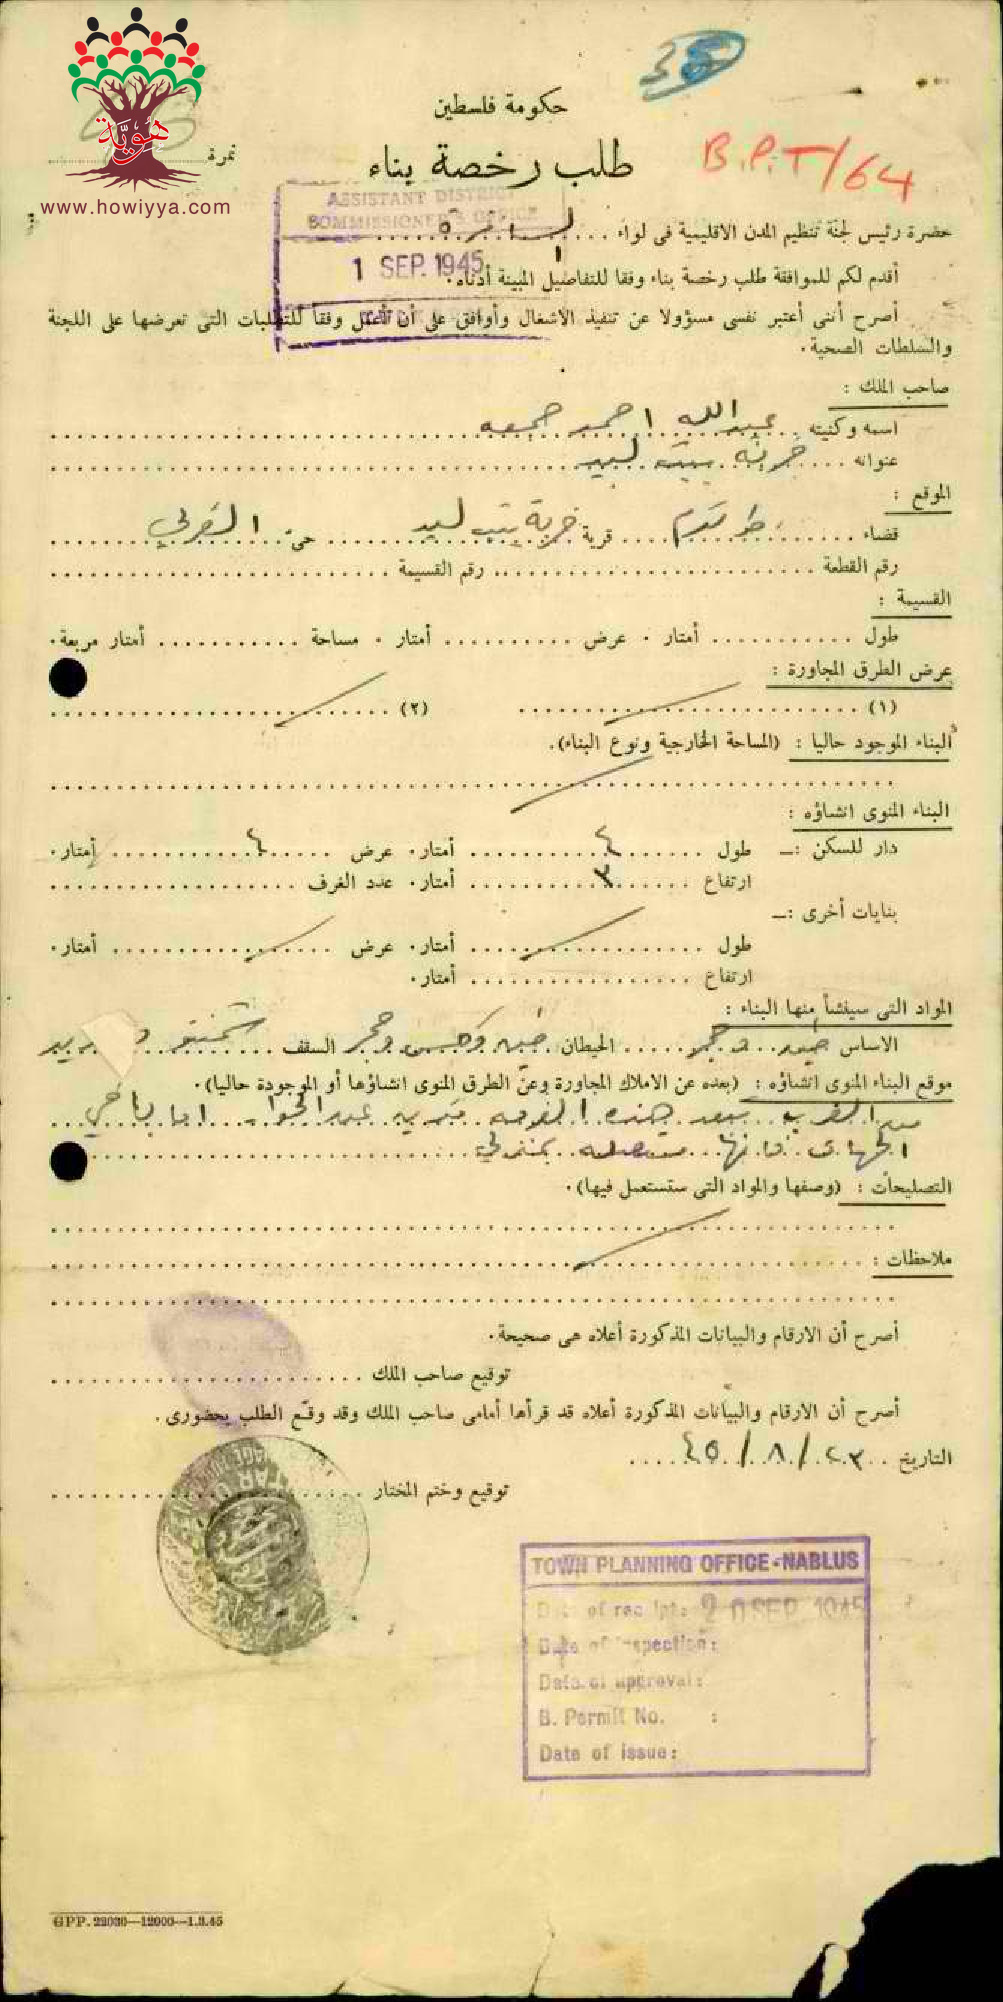 هُوِيَّة
www.howiyya.com
35
حكومة فلسطين
طلب رخصة بناء
B.P.T/64
نمرة
ASSISTANT DISTRICT
COMMISSIONER'S OFFICE
1 SEP. 1945
حضرة رئيس لجنة تنظيم المدن الاقليمية فى لواء السامرة
أقدم لكم للموافقة طلب رخصة بناء وفقا للتفاصيل المبينة أدناه.
أصرح أننى أعتبر نفسى مسؤولا عن تنفيذ الأشغال وأوافق على أن تعمل وفقا للمتطلبات التى تعرضها على اللجنة
والسلطات الصحية.
صاحب الملك :
اسمه وكنيته عبدالله احمد جمعه
عنوانه خربة بيت ليد
الموقع :
قضاء طولكرم قرية خربة بيت ليد حى الغربي
رقم القطعة رقم القسيمة
القسيمة :
طول أمتار . عرض أمتار . مساحة أمتار مربعة.
عرض الطرق المجاورة :
(١) (٢)
البناء الموجود حاليا : (المساحة الخارجية ونوع البناء).
البناء المنوى انشاؤه :
دار للسكن :— طول ٤ أمتار. عرض ٤ أمتار.
ارتفاع ٣ أمتار. عدد الغرف
بنايات أخرى :—
طول أمتار. عرض أمتار.
ارتفاع أمتار.
المواد التى سينشأ منها البناء :
الاساس وحجر الحيطان وحجر السقف شمنتو
موقع البناء المنوى انشاؤه : (بعده عن الاملاك المجاورة وعن الطرق المنوى انشاؤها أو الموجودة حاليا).
الغرب هذه الغرفه اما باقي
الجهات فانها متصله بمنزلي
التصليحات : (وصفها والمواد التى ستستعمل فيها).
ملاحظات :
أصرح أن الارقام والبيانات المذكورة أعلاه هى صحيحة.
توقيع صاحب الملك
أصرح أن الارقام والبيانات المذكورة أعلاه قد قرأها أمامى صاحب الملك وقد وقّع الطلب بحضورى.
التاريخ ٢٣/٨/٤٥
توقيع وختم المختار
TOWN PLANNING OFFICE-NABLUS
Date of receipt: 20 SEP. 1945
Date of inspection:
Date of approval:
B. Permit No. :
Date of issue:
GPP. 22030—12000—1.3.45